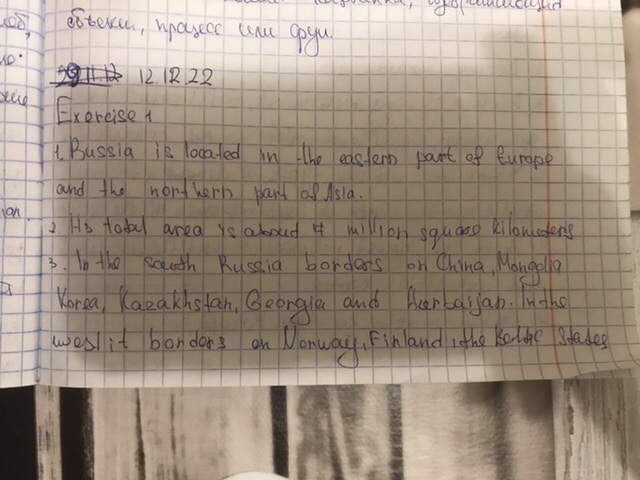 объекти, процесс или фун.
12.12.22
Exercise 1
1. Russia is located in the eastern part of Europe
and the northern part of Asia.
2. Its total area is aboud 17 million square kilometers
3. In the south Russia borders on China, Mongolia
Korea, Kazakhstan, Georgia and Azerbaijan. In the
west it borders on Norway, Finland, the Baltic States